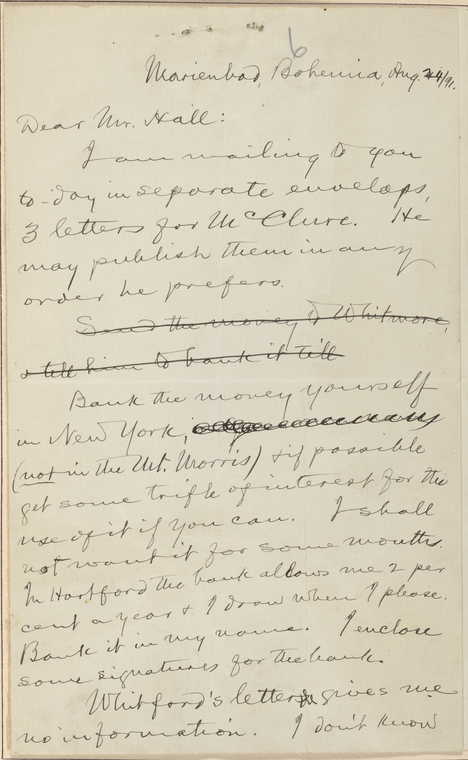 6
Marienbad, Bohemia, Aug. 24/91.
Dear Mr. Hall:
I am mailing to you
to-day in separate envelops,
3 letters for McClure. He
may publish them in any
order he prefers.
Send the money to Whitmore,
& tell him to bank it till
Bank the money yourself
in New York,
(not in the Mt. Morris) & if possible
get some trifle of interest for the
use of it if you can. I shall
not want it for some months.
In Hartford the bank allows me 2 per
cent a year & I draw when I please.
Bank it in my name. I enclose
some signatures for the bank.
Whitford's letter gives me
no information. I don't know